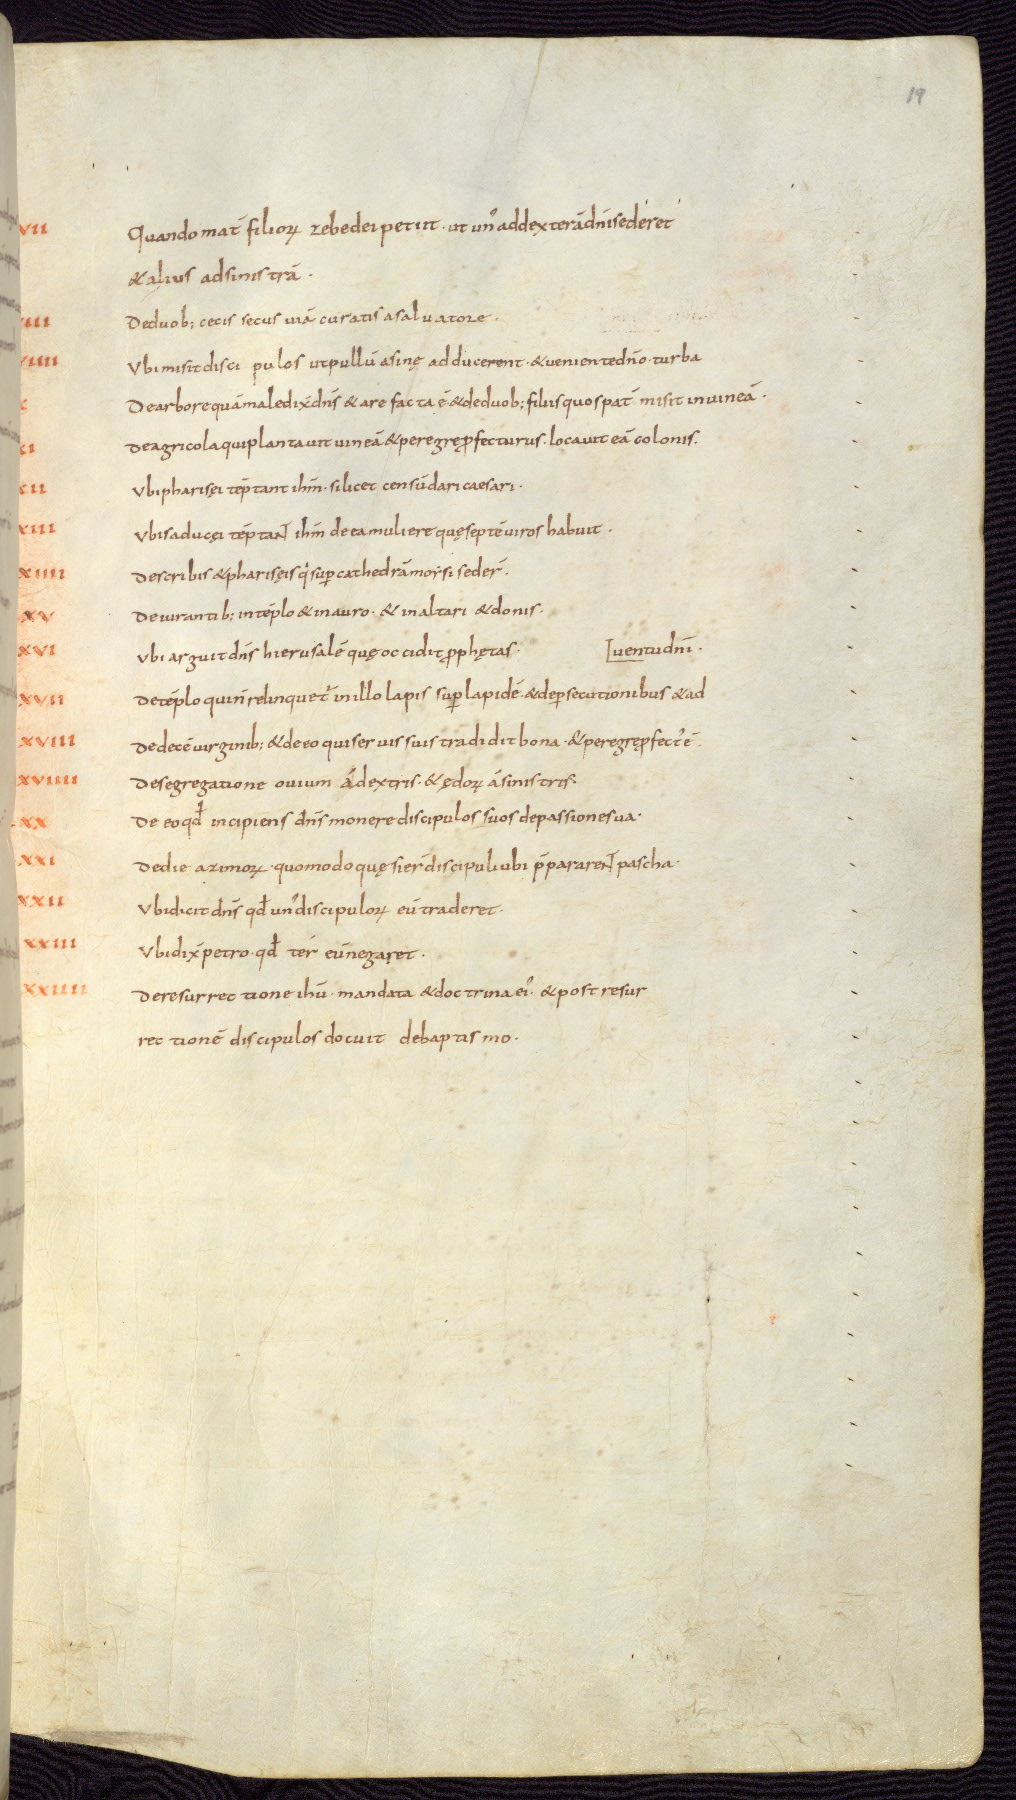 19
VII Quando mat̄ filioꝝ zebedei petiit · ut unꝰ ad dexterā dn̄i sederet
& alius ad sinistrā ·
VIII De duob; cecis secus uiā curatis a saluatore ·
VIIII Vbi misit discipulos ut pullū asinę adducerent · & ueniente dn̄o · turba
X De arbore quā maledix̄ dn̄s & arefacta ē · & de duob; filiis quos pat̄ misit in uineā ·
XI De agricola qui plantauit uineā & peregrę ꝓfecturus · locauit eā colonis ·
XII Vbi pharisęi tēptant ihm̄ · si licet censū dari caesari ·
XIII Vbi saducęi tēptant ihm̄ de ea muliere quę septē uiros habuit ·
XIIII De scribis & pharisęis q̇ suꝑ cathedrā moysi seder̄ ·
XV De iurantib; in tēplo & in auro · & in altari & donis ·
XVI Vbi arguit dn̄s hierusalē quę occidit ꝓphętas · uentu dn̄i ·
XVII De tēplo qui n̄ relinquet᷑ in illo lapis suꝑ lapidē · & de ꝑsecutionibus & ad
XVIII De decē uirginib; & de eo qui seruis suis tradidit bona · & peregrę ꝓfectꝰ ē ·
XVIIII De segregatione ouium á dextris · & ędoꝝ á sinistris ·
XX De eo qd̄ incipiens dn̄s monere discipulos suos de passione sua ·
XXI De die azimoꝝ · quomodo quęsier̄ discipuli ubi p̄pararent pascha ·
XXII Vbi dicit dn̄s qd̄ unꝰ discipuloꝝ eū traderet ·
XXIII Vbi dix̄ petro · qd̄ ter eū negaret ·
XXIIII De resurrectione ihū · mandata & doctrina eiꝰ · & post resur
rectionē discipulos docuit de baptismo ·